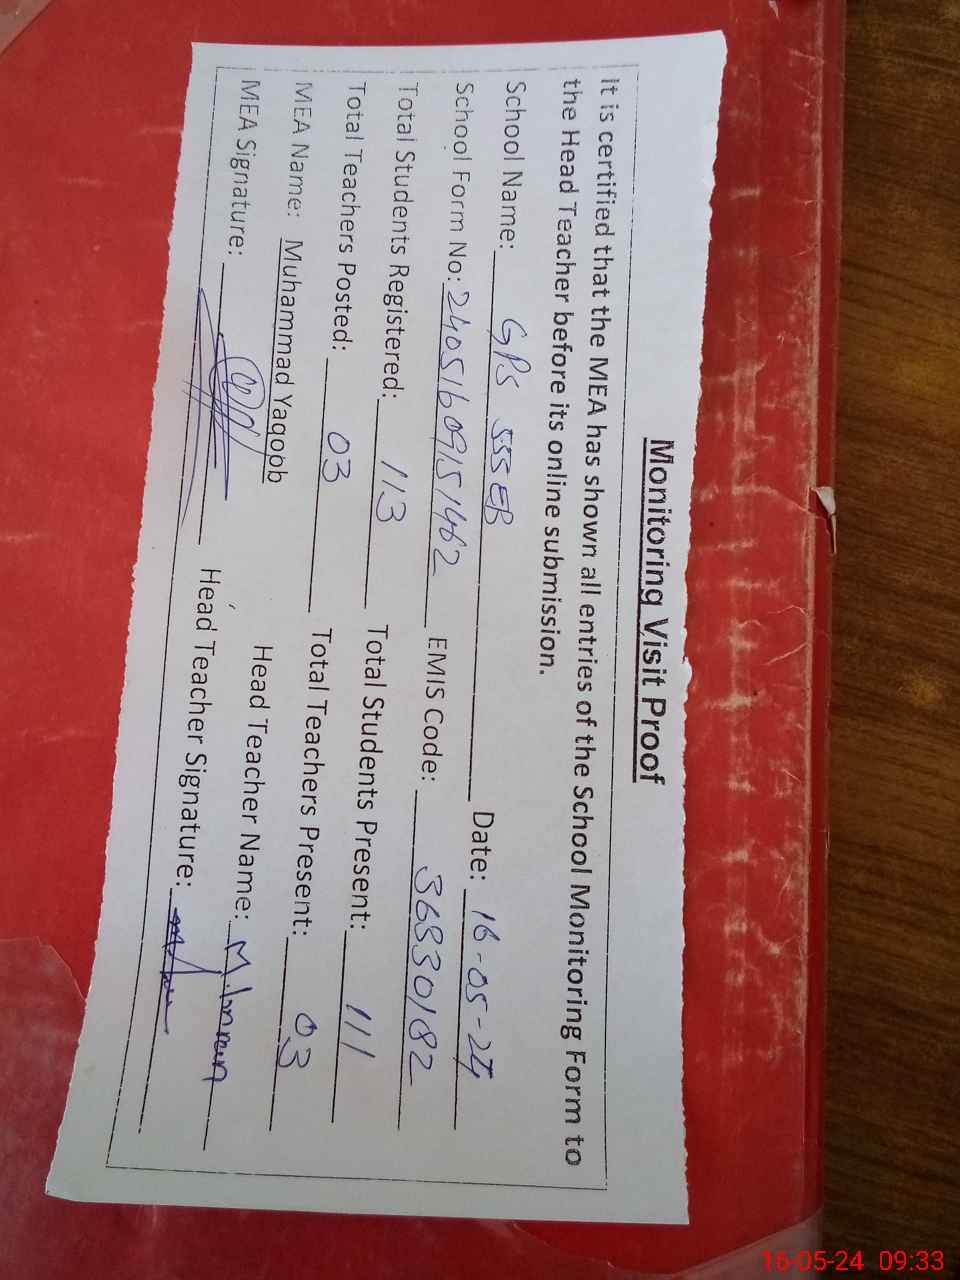 Monitoring Visit Proof
It is certified that the MEA has shown all entries of the School Monitoring Form to
the Head Teacher before its online submission.
School Name: GPS 555 EB Date: 16-05-24
School Form No: 24051609151462 EMIS Code: 36830182
Total Students Registered: 113 Total Students Present: 111
Total Teachers Posted: 03 Total Teachers Present: 03
MEA Name: Muhammad Yaqoob Head Teacher Name: M. Imran
MEA Signature: Head Teacher Signature:
16-05-24 09:33